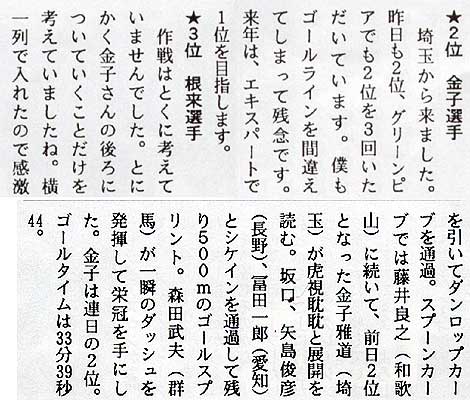 ★2位　金子選手
　埼玉から来ました。
昨日も2位、グリーンピ
アでも2位を3回いた
だいています。僕も
ゴールラインを間違え
てしまって残念です。
来年は、エキスパートで
1位を目指します。
★3位　根来選手
　作戦はとくに考えて
いませんでした。とに
かく金子さんの後ろに
ついていくことだけを
考えていましたね。横
一列で入れたので感激
を引いてダンロップカー
ブを通過。スプーンカー
ブでは藤井良之（和歌
山）に続いて、前日2位
となった金子雅道（埼
玉）が虎視眈眈と展開を
読む。坂口、矢島俊彦
（長野）、冨田一郎（愛知）
とシケインを通過して残
り500mのゴールスプ
リント。森田武夫（群
馬）が一瞬のダッシュを
発揮して栄冠を手にし
た。金子は連日の2位。
ゴールタイムは33分39秒
44。